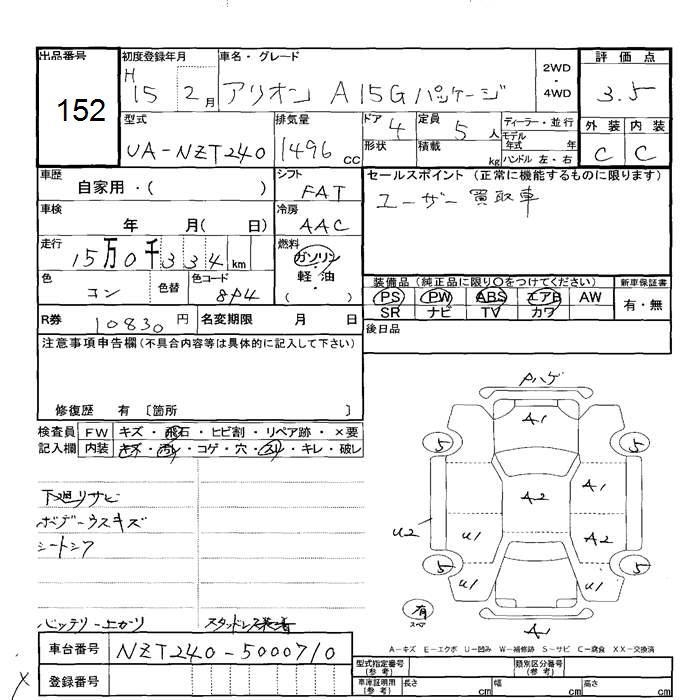 出品番号 152
初度登録年月 H 15 2月
車名・グレード アリオン A15Gパッケージ
2WD・4WD
評価点 3.5
型式 UA-NZT240
排気量 1496 cc
ドア 4 形状
定員 5 人 積載 kg
ディーラー・並行
モデル年式 年
ハンドル 左・右
外装 C 内装 C
車歴 自家用・( )
シフト FAT
セールスポイント (正常に機能するものに限ります)
ユーザー買取車
車検 年 月( 日)
冷房 AAC
走行 15万0千334km
燃料 ガソリン・軽油 ( )
色 コン 色替 色コード 8P4
装備品 (純正品に限り○をつけてください) 新車保証書
PS PW ABS エアB AW 有・無
SR ナビ TV カワ
R券 10830 円 名変期限 月 日
後日品
注意事項申告欄(不具合内容等は具体的に記入して下さい)
修復歴 有 〔箇所 〕
検査員記入欄 FW キズ・飛石・ヒビ割・リペア跡・×要
内装 キズ・汚レ・コゲ・穴・スリ・キレ・破レ
下廻りサビ
ボデーウスキズ
シートシワ
バッテリー上がり スタッドレス装着
Pハゲ
A1
5 5
A2 A1
U2 U1 A2
5 5
U1 U1
有
A1
A-キズ E-エクボ U-凹み W-補修跡 S-サビ C-腐食 XX-交換済
車台番号 NZT240-5000710
登録番号
型式指定番号(参考) 類別区分番号(参考)
車庫証明用(参考) 長さ cm 幅 cm 高さ cm